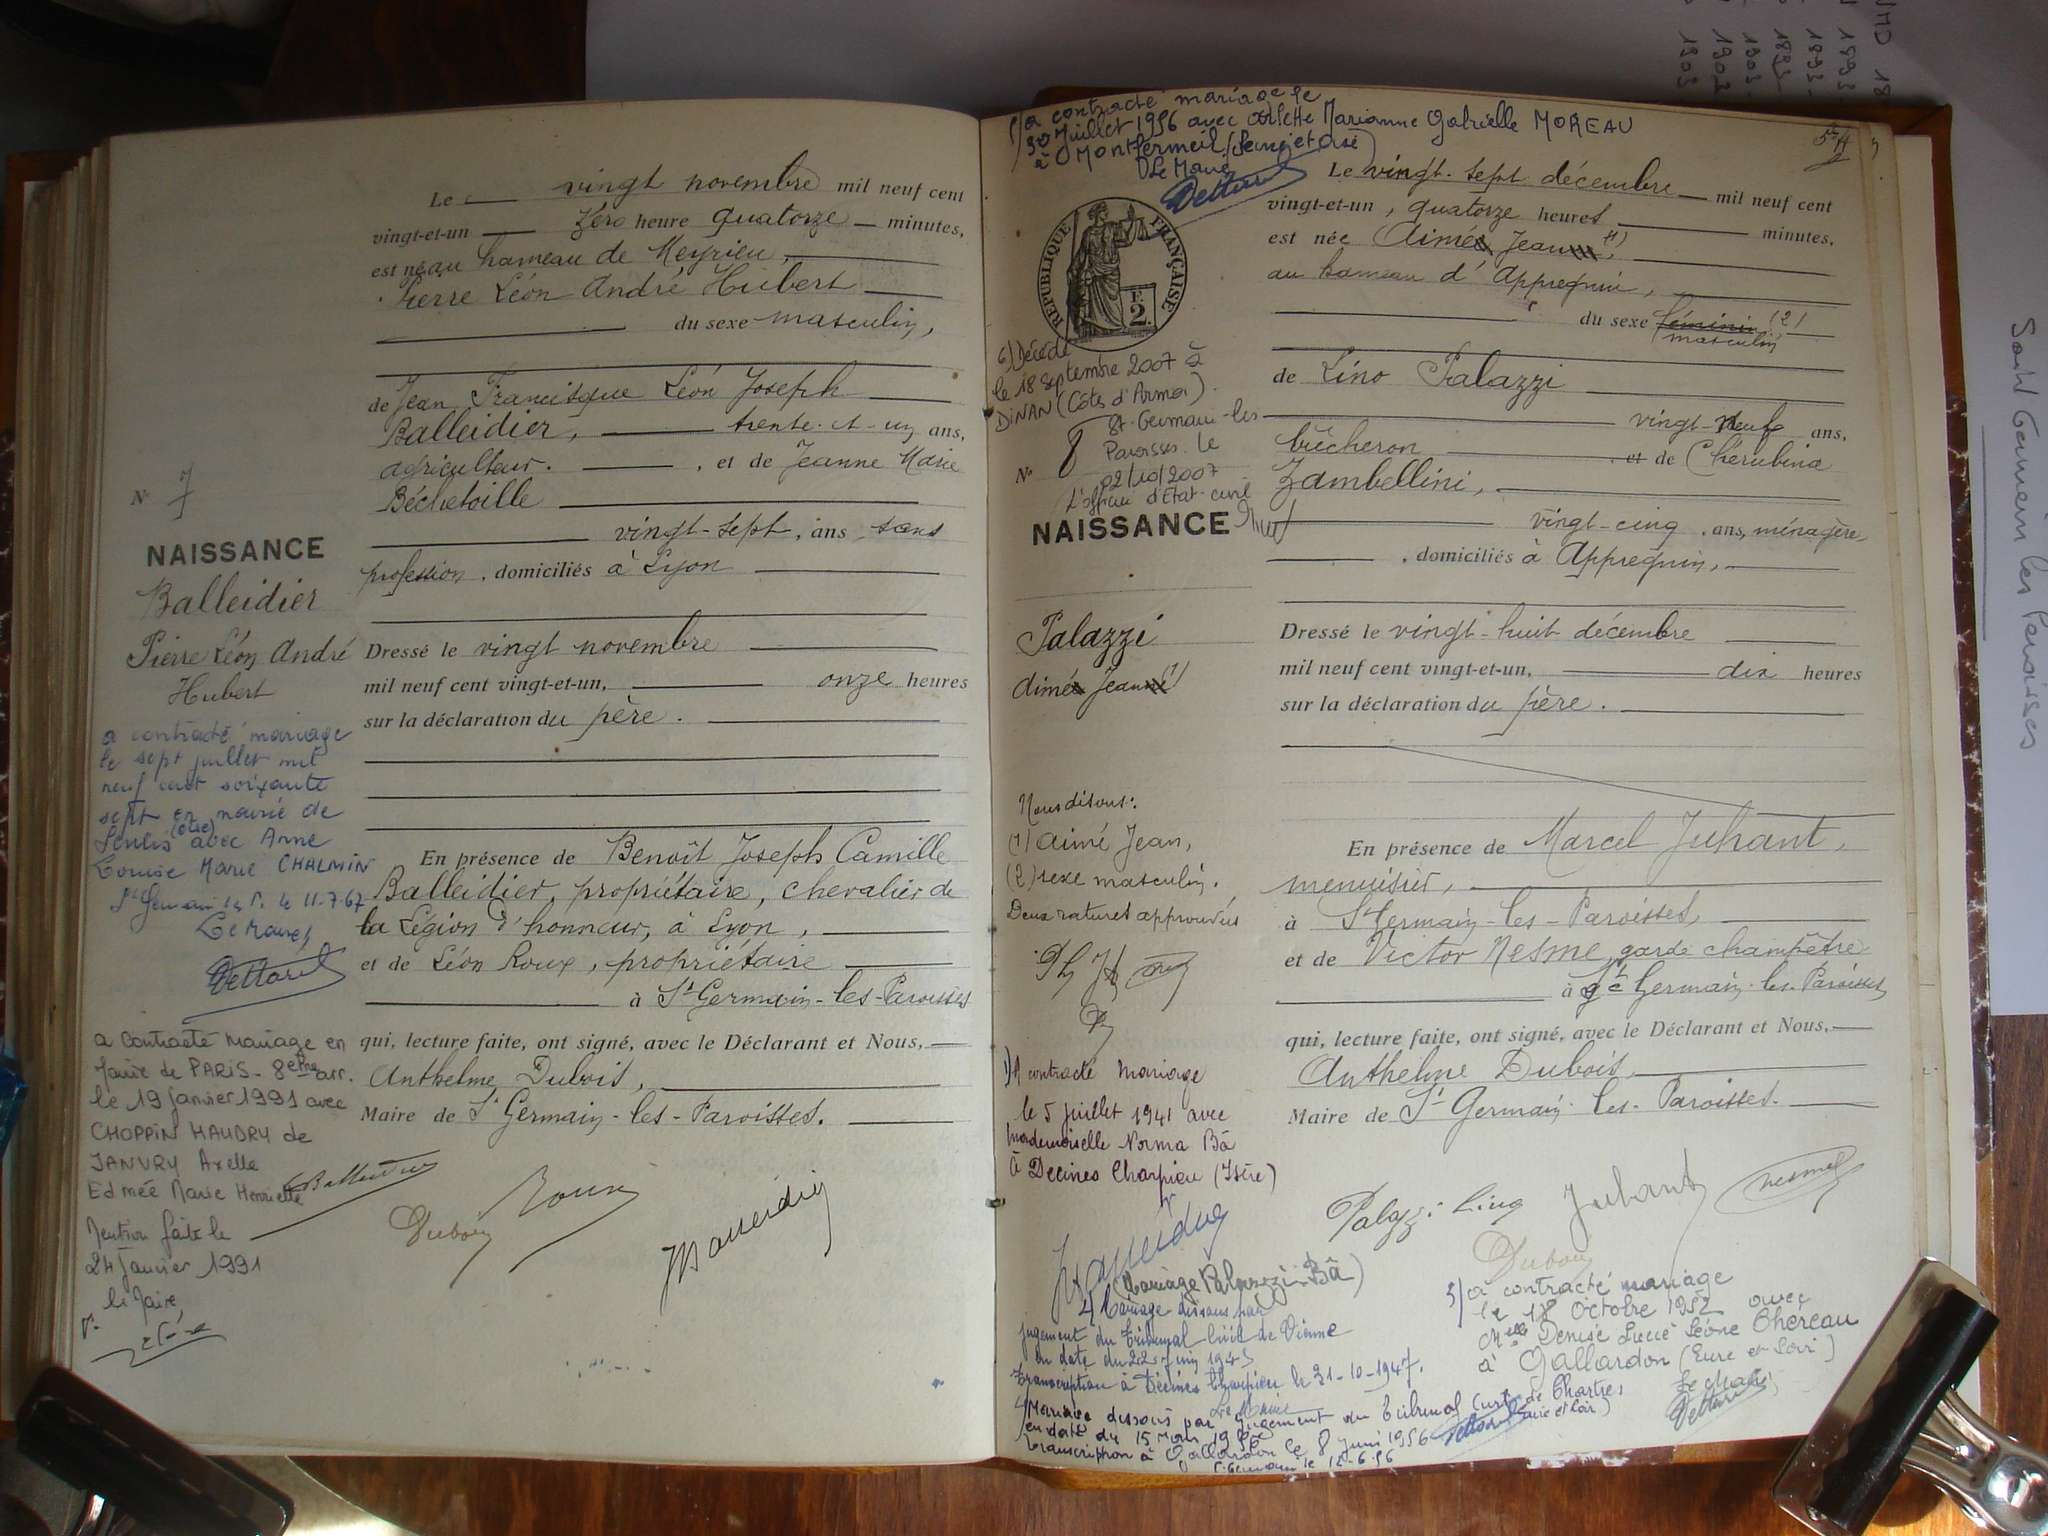 Le vingt novembre mil neuf cent
vingt-et-un zéro heure quatorze minutes,
est né au hameau de Meyrieu,
Pierre Léon André Hubert
du sexe masculin,
de Jean Francisque Léon Joseph
Balleidier, trente-et-un ans,
agriculteur. , et de Jeanne Marie
Béchetoille
vingt-sept, ans, sans
profession, domiciliés à Lyon
Dressé le vingt novembre
mil neuf cent vingt-et-un, onze heures
sur la déclaration du père.
En présence de Benoît Joseph Camille
Balleidier, propriétaire, chevalier de
la Légion d'honneur, à Lyon,
et de Léon Roux, propriétaire
à St Germain-les-Paroisses
qui, lecture faite, ont signé, avec le Déclarant et Nous,
Anthelme Dubois,
Maire de St Germain-les-Paroisses.
Balleidier
Dubois
Roux
N° 7
NAISSANCE
Balleidier
Pierre Léon André
Hubert
a contracté mariage
le sept juillet mil
neuf cent soixante
sept en mairie de
Senlis (Oise) avec Anne
Louise Marie CHALMIN
St Germain les P. le 11-7-67
Le Maire,
a contracté mariage en
Mairie de PARIS - 8ème arr.
le 19 janvier 1991 avec
CHOPPIN HAUDRY de
JANVRY Axelle
Edmée Marie Henriette
Mention faite le
24 Janvier 1991
le Maire,
5) a contracté mariage le
30 Juillet 1956 avec Arlette Marianne Gabrielle MOREAU
à Montfermeil (Seine et Oise)
Le Maire
RÉPUBLIQUE FRANÇAISE
F.
2.
6) Décédé
le 18 Septembre 2007 à
DINAN (Côtes d'Armor).
St Germain-les-
Paroisses le
02/10/2007
L'officier d'Etat-civil
N° 8
NAISSANCE
Palazzi
Aimée Jeanne (1)
Nous disons:
(1) Aimé Jean,
(2) sexe masculin.
Deux ratures approuvées
1) A contracté mariage
le 5 juillet 1941 avec
Mademoiselle Norma Bà
à Decines Charpieu (Isère)
(Mariage Palazzi-Bà)
2) Mariage dissous par
jugement du Tribunal Civil de Vienne
en date du 22 Juin 194
transcription à Décines Charpieu le 31-10-1947.
Le Maire
Mariage dissous par jugement du Tribunal Civil de Chartres
(Eure et Loir)
en date du 15 Mars 1956
transcription à Gallardon le 8 juin 1956
St Germain le 12-6-56
Le vingt-sept décembre mil neuf cent
vingt-et-un, quatorze heures minutes,
est née Aimée Jeanne (1),
au hameau d'Appregnin,
du sexe féminin (2)
masculin
de Lino Palazzi
vingt-neuf ans,
bûcheron et de Chérubina
Zambellini,
vingt-cinq, ans, ménagère,
, domiciliés à Appregnin,
Dressé le vingt-huit décembre
mil neuf cent vingt-et-un, dix heures
sur la déclaration du père.
En présence de Marcel Juhant,
menuisier,
à St Germain-les-Paroisses,
et de Victor Nesme, garde champêtre
à St Germain-les-Paroisses
qui, lecture faite, ont signé, avec le Déclarant et Nous,
Anthelme Dubois,
Maire de St Germain-les-Paroisses.
Palazzi Lino
Juhant
Nesme
Dubois
3) a contracté mariage
le 18 Octobre 1952 avec
Melle Denise Lucie Léone Chéreau
à Gallardon (Eure et Loir)
Le Maire
Saint Germain les Paroisses
1893
1903
1902
1903